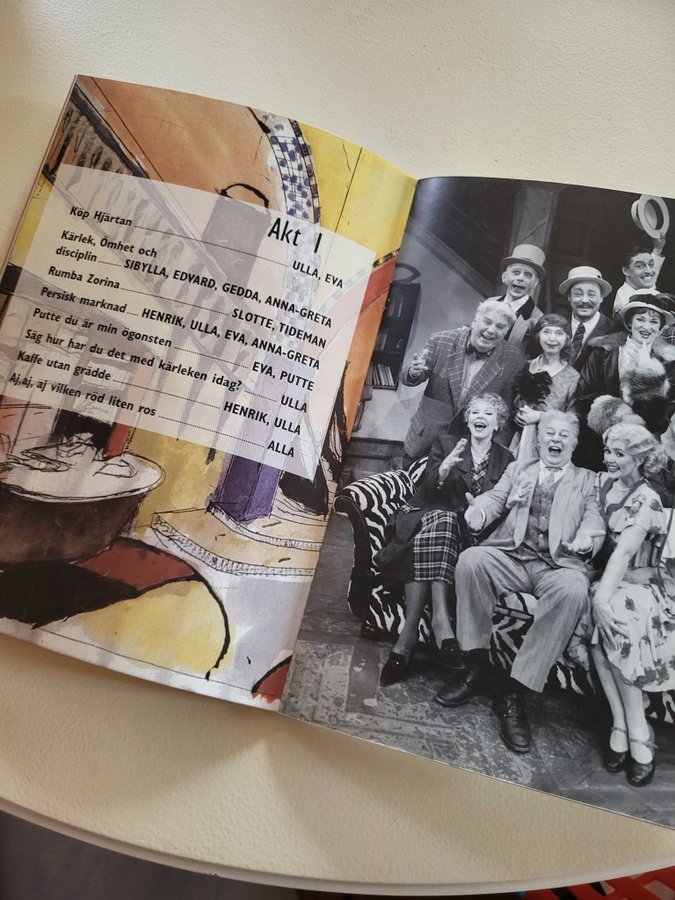 Akt I
Köp Hjärtan ULLA, EVA
Kärlek, Ömhet och
disciplin SIBYLLA, EDVARD, GEDDA, ANNA-GRETA
Rumba Zorina SLOTTE, TIDEMAN
Persisk marknad HENRIK, ULLA, EVA, ANNA-GRETA
Putte du är min ögonsten EVA, PUTTE
Säg hur har du det med kärleken idag? ULLA
Kaffe utan grädde HENRIK, ULLA
Aj,aj, aj vilken röd liten ros ALLA